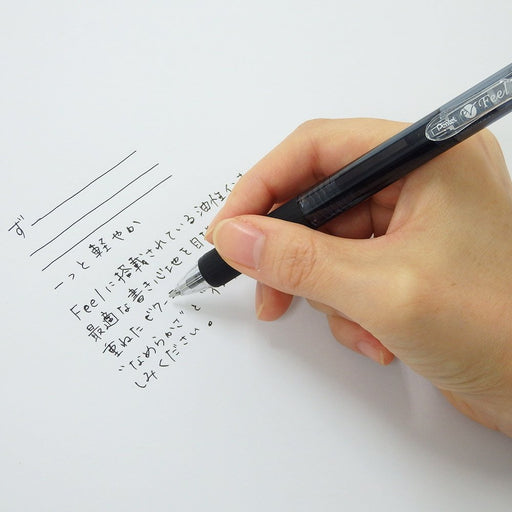 ず
ーっと軽やか
Feelに搭載されている油性イン
最適な書き心地を目
重ねた
"なめらかさ"と
しみください。
Pentel
Feel